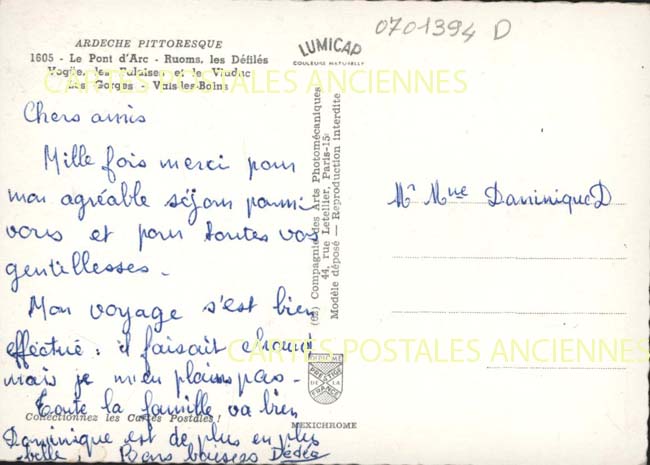 0701394 D
ARDECHE PITTORESQUE
1605 - Le Pont d'Arc - Ruoms, les Défilés
Vogüe, les Falaises et le Viaduc
Les Gorges - Vals-les-Bains
LUMICAP
COULEURS NATURELLES
CARTES POSTALES ANCIENNES
Chers amis
Mille fois merci pour
mon agréable séjour parmi
vous et pour toutes vos
gentillesses.
Mon voyage s'est bien
effectué : il faisait chaud
mais je m'en plains pas -
Toute la famille va bien
Collectionnez les Cartes Postales !
Dominique est de plus en plus
belle, Bons baisers Dédée
(62) Compagnie des Arts Photomécaniques
44, rue Letellier, Paris-15e
Modèle déposé - Reproduction interdite
Mr Mme Daminique D
CARTES POSTALES ANCIENNES
IMPRIMÉ
PRESTIGE
DE LA
FRANCE
MEXICHROME